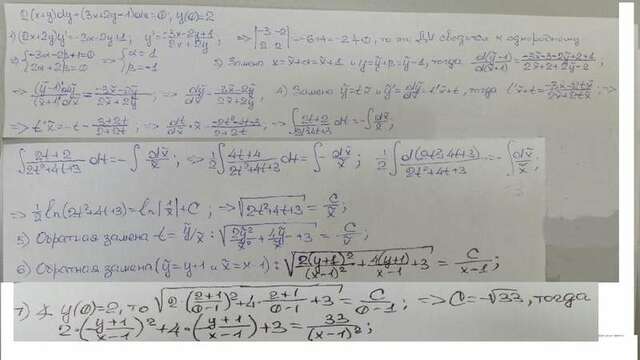 2(x+y)dy+(3x+2y-1)dx=0, y(0)=2
1) (2x+2y)y'=-3x-2y+1; y'=(-3x-2y+1)/(2x+2y) => |-3 -2; 2 2| = -6+4=-2≠0, то это ДУ сводится к однородному
2) {-3α-2β+1=0 {2α+2β=0 => {α=1 {β=-1 3) Замена x=x̃+α=x̃+1 и y=ỹ+β=ỹ-1, тогда d(ỹ-1)/d(x̃+1)=(-3x̃-3-2ỹ+2+1)/(2x̃+2+2ỹ-2);
=> dỹ/dx̃=(-3x̃-2ỹ)/(2x̃+2ỹ) 4) Замена ỹ=tx̃ и ỹ'=dỹ/dx̃=t'x̃+t, тогда t'x̃+t=(-3x̃-2tx̃)/(2x̃+2tx̃); =>
=> t'x̃=-t-(3+2t)/(2+2t); => dt/dx̃·x̃=-(2t²+4t+3)/(2+2t), => ∫(2t+2)/(2t²+4t+3)dt=-∫dx̃/x̃;
∫(2t+2)/(2t²+4t+3)dt=-∫dx̃/x̃, => ½∫(4t+4)/(2t²+4t+3)dt=∫-dx̃/x̃; ½∫d(2t²+4t+3)/(2t²+4t+3)=-∫dx̃/x̃;
=> ½ln(2t²+4t+3)=ln|1/x̃|+C, => √(2t²+4t+3)=C/x̃;
5) Обратная замена t=ỹ/x̃: √(2ỹ²/x̃²+4ỹ/x̃+3)=C/x̃;
6) Обратная замена (ỹ=y+1 и x̃=x-1): √(2(y+1)²/(x-1)²+4(y+1)/(x-1)+3)=C/(x-1);
7) y(0)=2, то √(2·((2+1)/(0-1))²+4·(2+1)/(0-1)+3)=C/(0-1); => C=-√33, тогда
2·((y+1)/(x-1))²+4·((y+1)/(x-1))+3=33/(x-1)²;